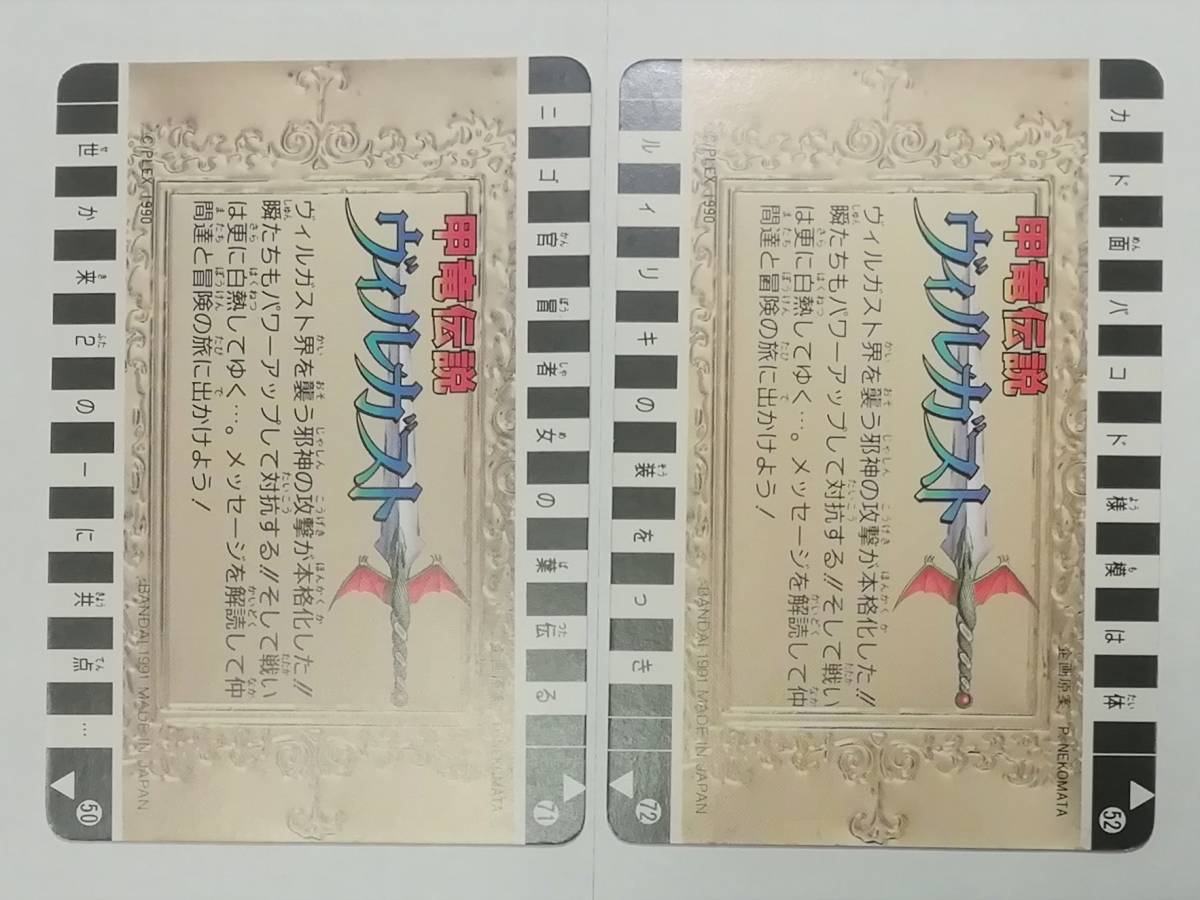 ニ ゴ 官 冒 者 女 の 葉 伝 る
71
甲竜伝説
ヴィルガスト
ヴィルガスト界を襲う邪神の攻撃が本格化した!!
瞬たちもパワーアップして対抗する!!そして戦い
は更に白熱してゆく…。メッセージを解読して仲
間達と冒険の旅に出かけよう!
©PLEX 1990
©BANDAI 1991 MADE IN JAPAN
世 か 来 2 の 一 に 共 点 …
50
カ ド 面 バ コ ド 様 模 は 体
52
企画原案 P. NEKOMATA
甲竜伝説
ヴィルガスト
ヴィルガスト界を襲う邪神の攻撃が本格化した!!
瞬たちもパワーアップして対抗する!!そして戦い
は更に白熱してゆく…。メッセージを解読して仲
間達と冒険の旅に出かけよう!
©PLEX 1990
©BANDAI 1991 MADE IN JAPAN
ル ィ リ キ の 装 を っ き
72